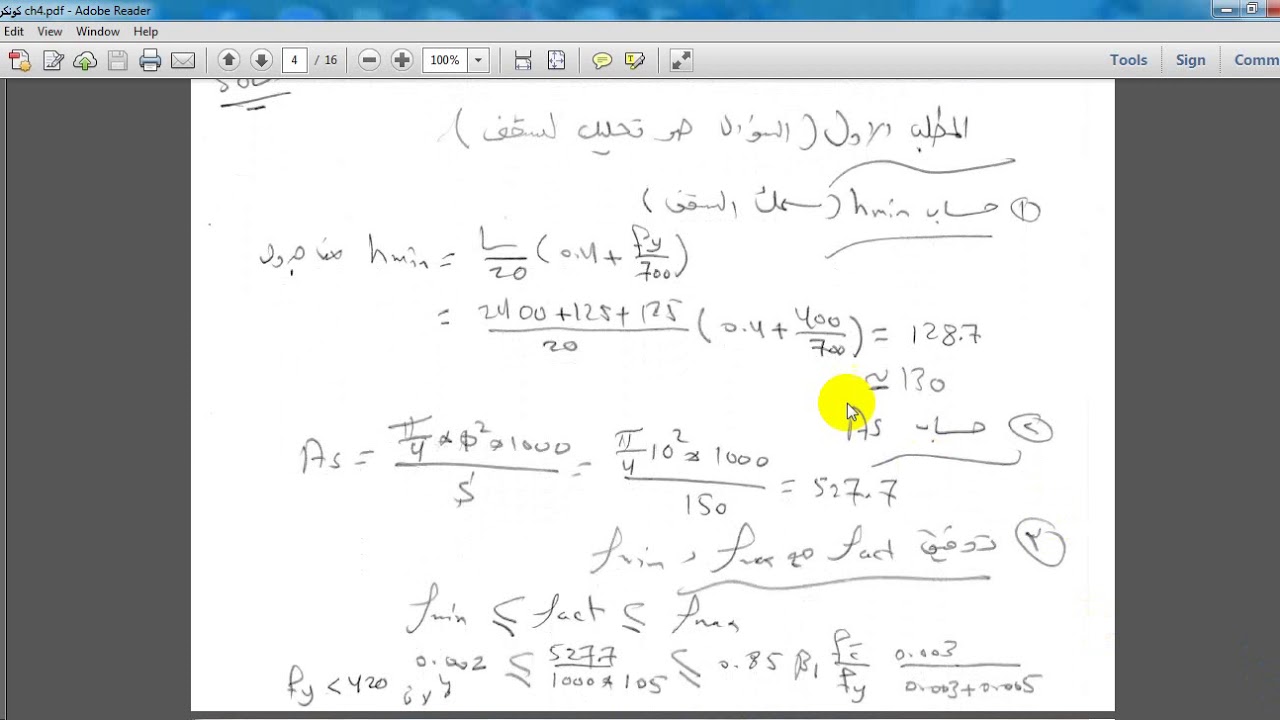 كونكر ch4.pdf - Adobe Reader
Edit View Window Help
4 / 16 100% Tools Sign Comm
المطلب الاول (السؤال هو تحليل لسقف)
① حساب hmin (سمك السقف)
hmin = L/20 (0.4 + fy/700)
= 2400+125+125/20 (0.4 + 400/700) = 128.7
≈ 130
② حساب As
As = π/4 * φ² * 1000/S = π/4 10² * 1000/150 = 527.7
③ تدقيق ρact مع ρmax و ρmin
ρmin ≤ ρact ≤ ρmax
fy < 420 0.002 ≤ 527.7/1000*105 ≤ 0.85 β₁ fc/fy 0.003/0.003+0.005